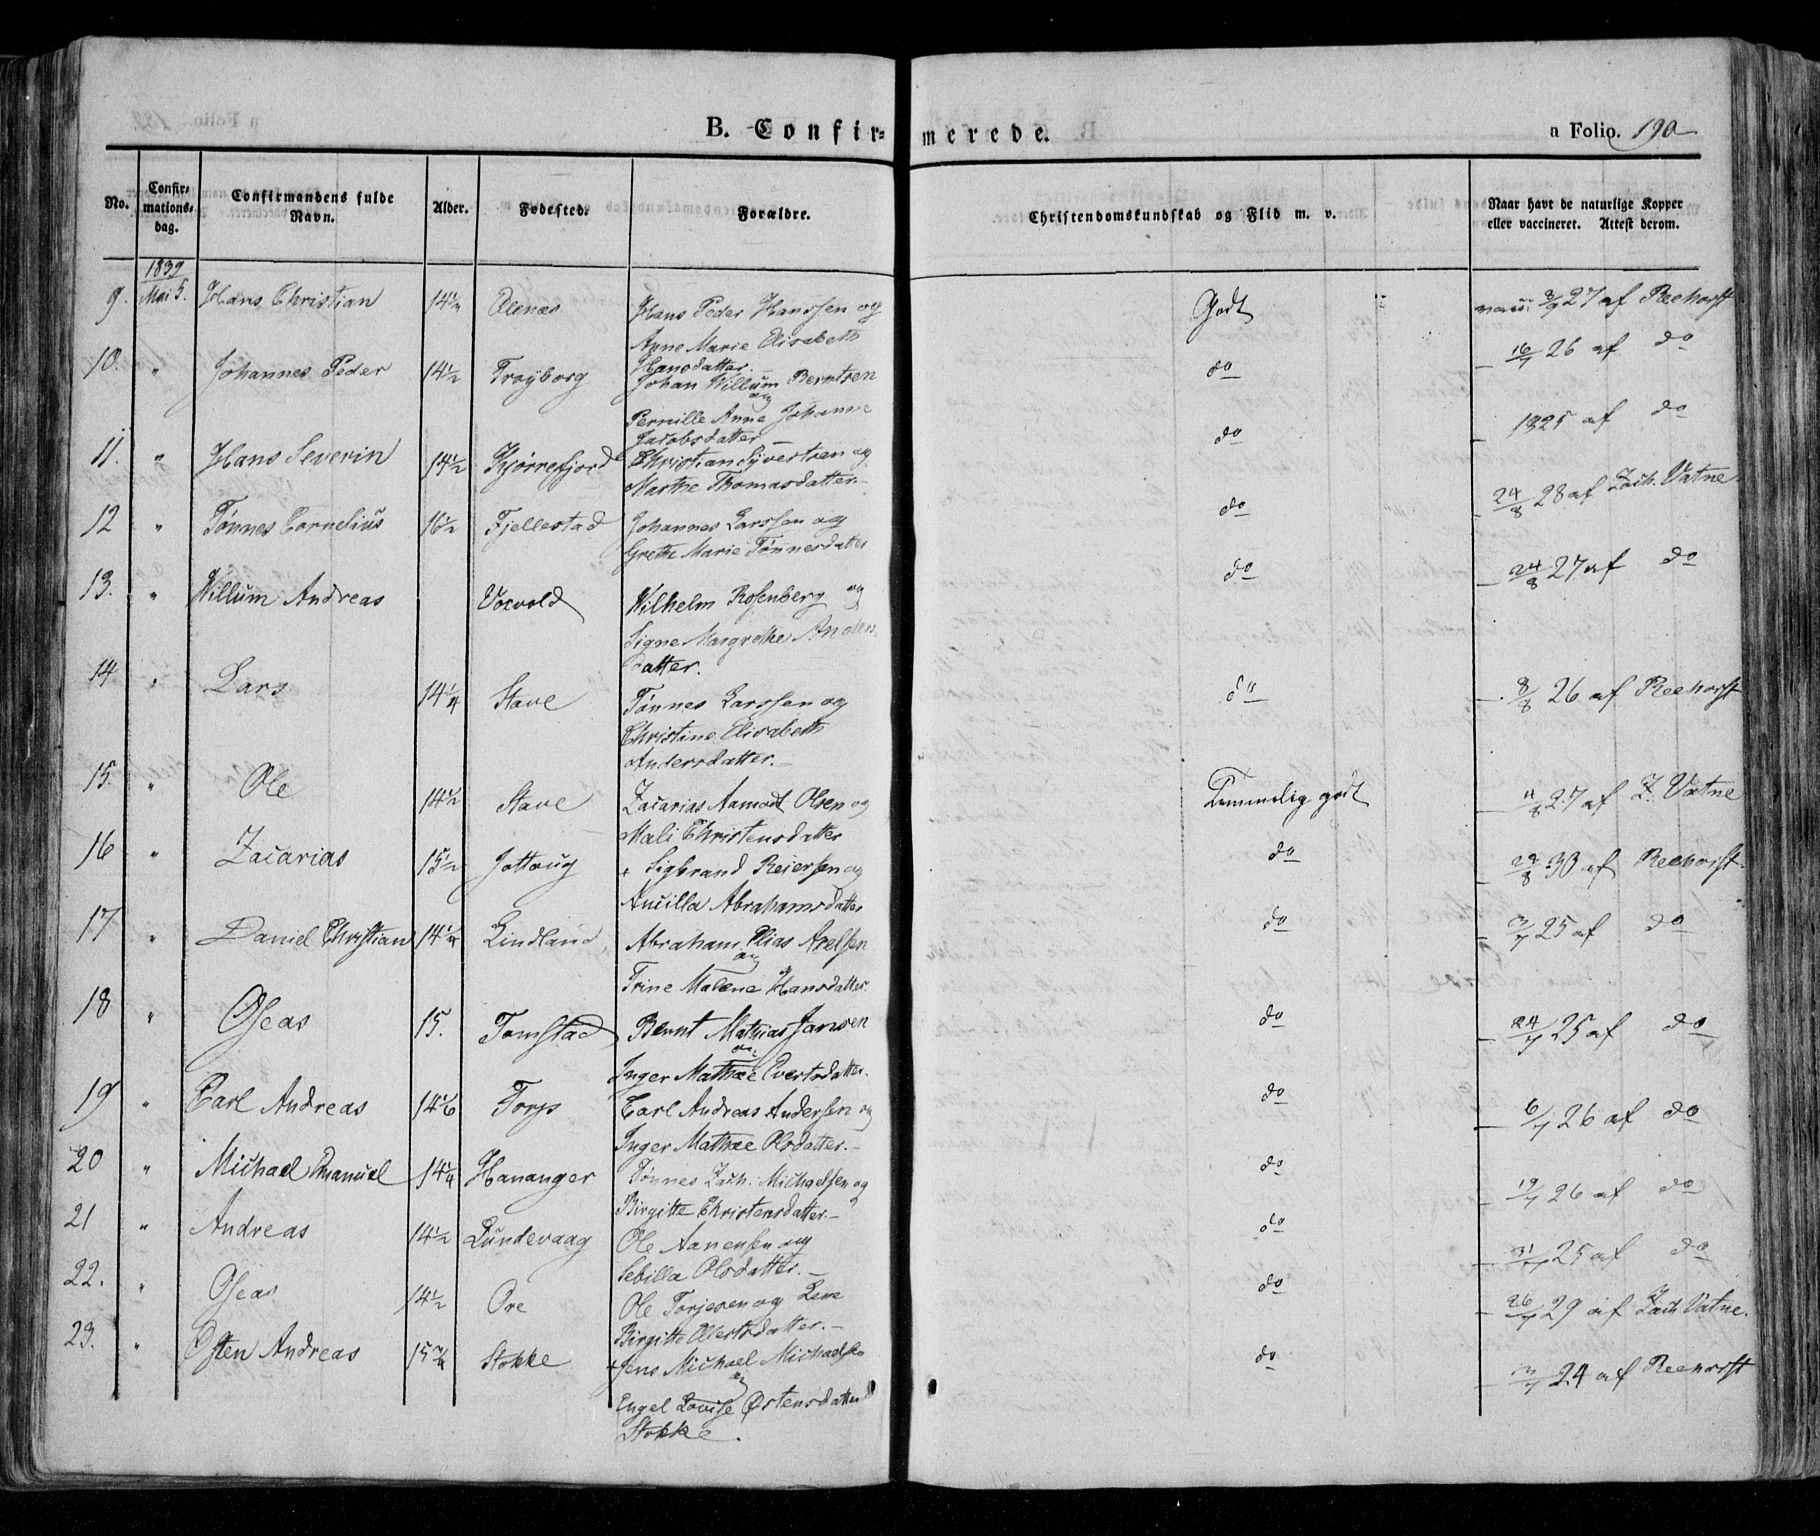 B. Confir- merede.
a Folio. 190
No. Confir-mations-dag. Confirmandens fulde Navn. Alder. Fodested. Forældre. Christendomskundskab og Flid m. v. Naar havt de naturlige Kopper eller vaccineret. Attest derom.
1839
9. Mai 5. Hans Christian 14 1/4 Hans Peder Hanssen og Godt vacc: 3/9 27 af Reehorst
Anne Marie Elisabeth
Hansdatter.
10. " Johannes Peder 14 1/2 Trøyborg Johan Willum Berntsen do 16/7 26 af do
og
Pernille Anne Johanne
Jacobsdatter
11. " Hans Severin 14 1/2 Kjørrefjord Christian Syvertsen og do 1825 af do
Marthe Thomasdatter.
12 " Tønnes Cornelius 16 1/2 Fjellestad Johannes Larssen og do 24/8 28 af Zach. Vatne
Grethe Marie Tønnesdatter
13. " Willum Andreas Vorvold Wilhelm Rosenberg og do 24/8 27 af do
Signe Margrethe Anders
datter.
14 " Lars 14 1/4 Stave Tønnes Larssen og do 8/8 26 af Reehorst
Christine Elisabeth
Andersdatter.
15. " Ole 14 1/2 Stave Zacarias Aamodt Olsen og Temmelig godt 11/8 27 af Z. Vatne
Mali Christensdatter
16 " Zacarias 15 1/2 Jottoug + Sigbrand Reiersen og do 29/8 30 af Reehorst.
Ancilla Abrahamsdatter
17 " Daniel Christian 14 1/4 Lindland Abraham Elias Axelsen do 3/7 25 af do
og
Trine Malene Hansdatter.
18 " Oseas 15. Tomstad Bernt Mathias Jansen do 24/7 25 af do
og
Inger Mathæe Evertsdatter.
19 " Carl Andreas 14 1/6 Torp Carl Andreas Andersen og do 6/7 26 af do
Inger Mathæe Olsdatter.
20 " Michael Emanuel 14 1/4 Hananger Tønnes Zach: Michaelsen og do 19/7 26 af do
Birgitte Christensdatter.
21 " Andreas 14 1/2 Lundevaag Ole Aanensen og do 31/7 25 af do
Sebilla Olsdatter.
22. " Oseas 14 1/2 Ore Ole Torjesen og Lene do 26/7 29 af Zach Vatne.
Birgitte Olsdatter.
23. " Østen Andreas 15 3/4 Stokke + Jens Michael Michaelsen do 3/7 24 af Reehorst
og
Engel Lovise Østensdatter
Stokke.